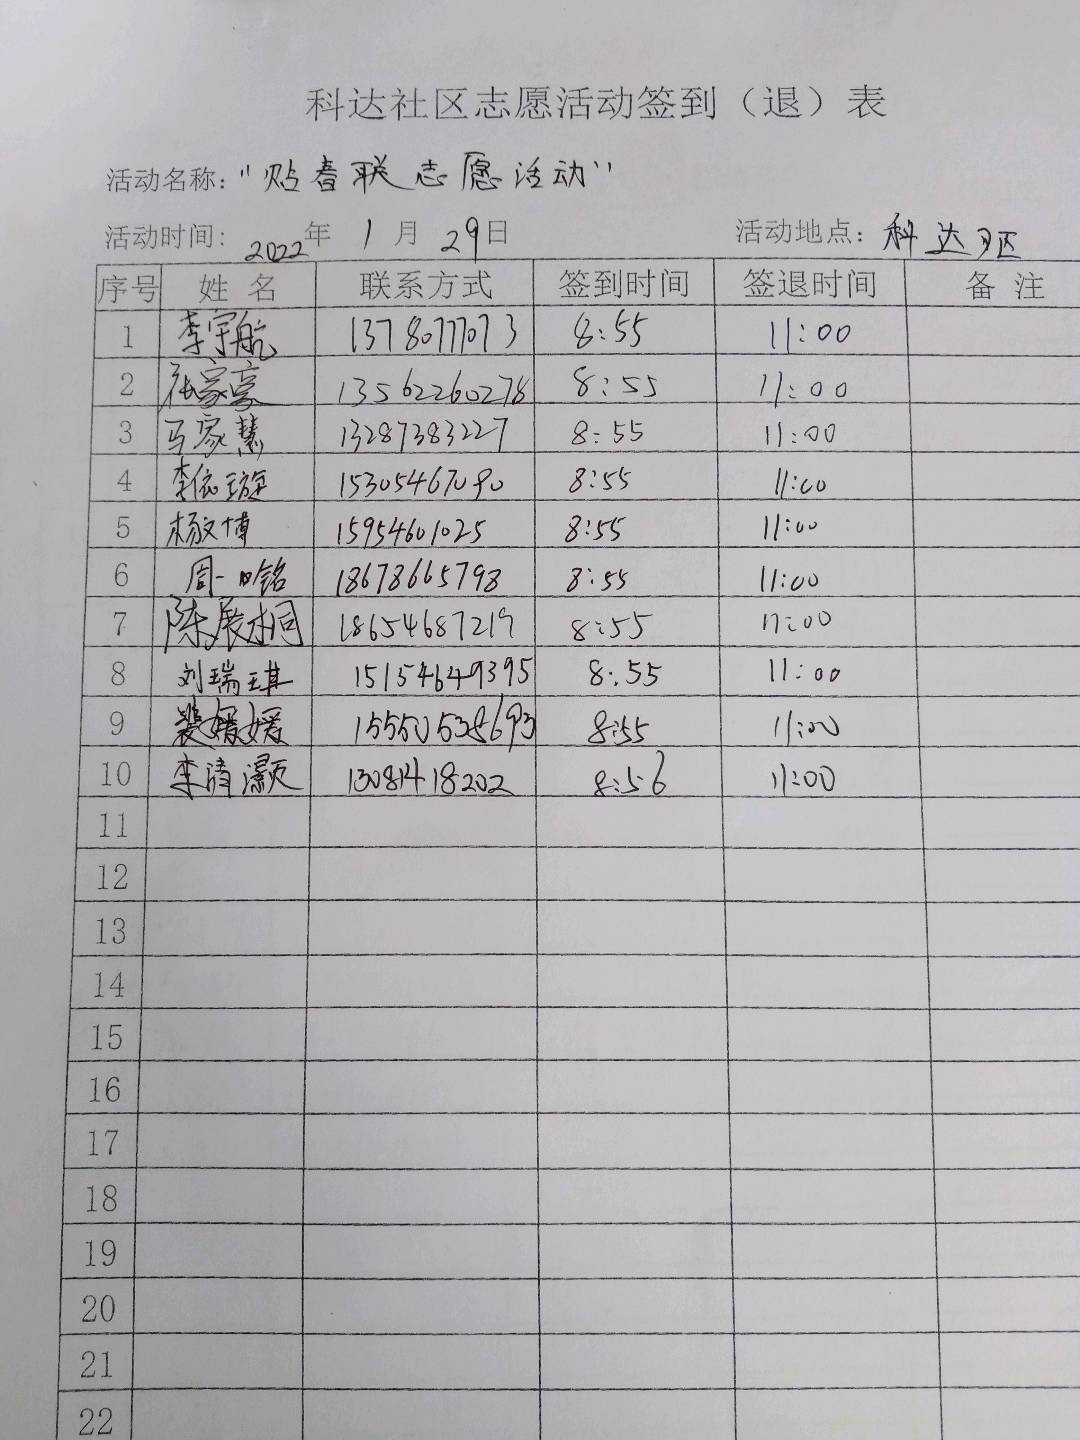 科达社区志愿活动签到（退）表
活动名称："贴春联志愿活动"
活动时间：2022年 1月 29日 活动地点：科达
序号 姓名 联系方式 签到时间 签退时间 备注
1 李宇航 13780777073 8:55 11:00
2 张家豪 13562260278 8:55 11:00
3 马家慧 13287383227 8:55 11:00
4 李依璇 15305467090 8:55 11:00
5 杨文博 15954601025 8:55 11:00
6 周一晗铭 18678665798 8:55 11:00
7 陈展桐 18654687219 8:55 11:00
8 刘瑞琪 15154649395 8:55 11:00
9 裴媛媛 15550538693 8:55 11:00
10 李清灏 13081418202 8:56 11:00
11
12
13
14
15
16
17
18
19
20
21
22